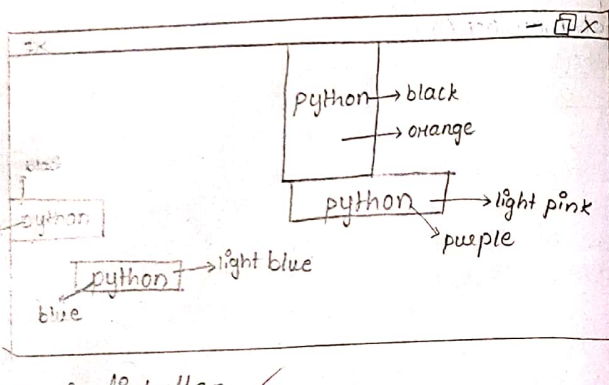 python
black
orange
python
light pink
purple
python
python
light blue
blue